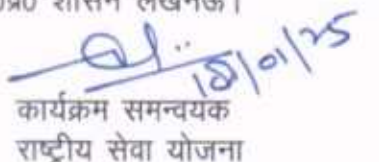 शासन लखनऊ।
18/01/25
कार्यक्रम समन्वयक
राष्ट्रीय सेवा योजना